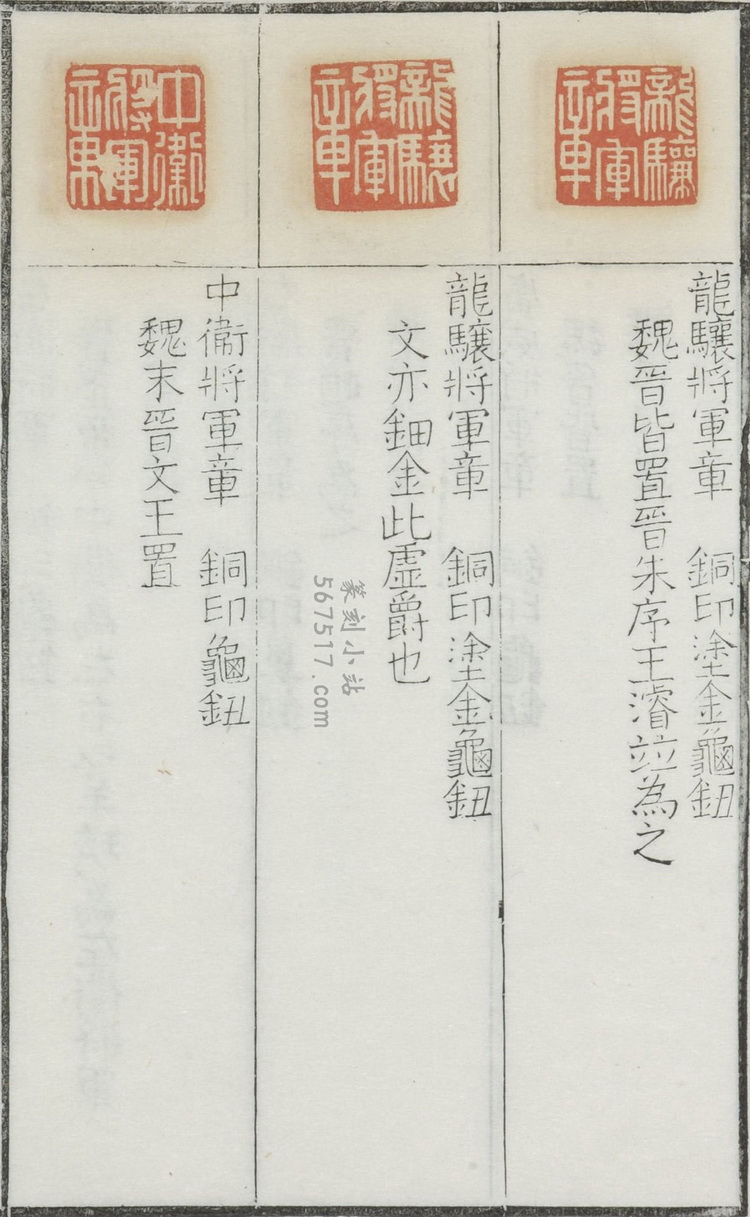 龍驤將軍章
龍驤將軍章　銅印塗金龜鈕
魏晉皆置晉朱序王濬竝為之
龍驤將軍章
龍驤將軍章　銅印塗金龜鈕
文亦鈿金此虛爵也
中衛將軍章
中衛將軍章　銅印龜鈕
魏末晉文王置
篆刻小站
567517.com